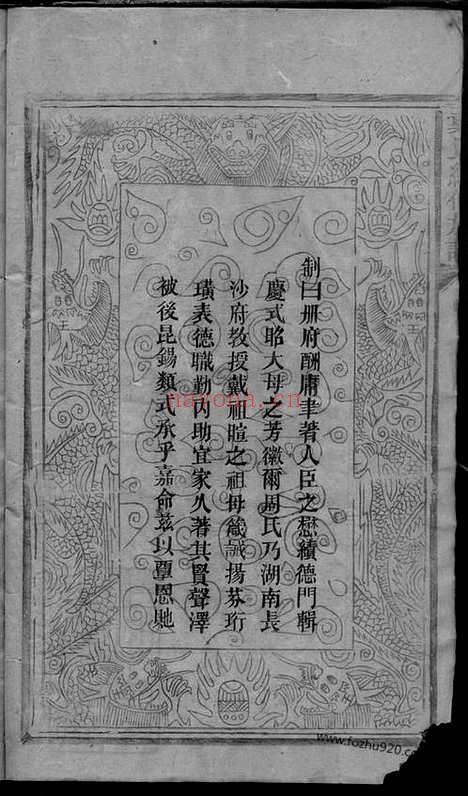 制曰冊府酬庸聿著人臣之懋績德門輯
慶式昭大母之芳徽爾周氏乃湖南長
沙府教授戴祖暄之祖母箴誡揚芬珩
璜表德職勤內助宜家久著其賢聲澤
被後昆錫類式承乎嘉命茲以覃恩貤
nayona.cn
www.fozhu920.com